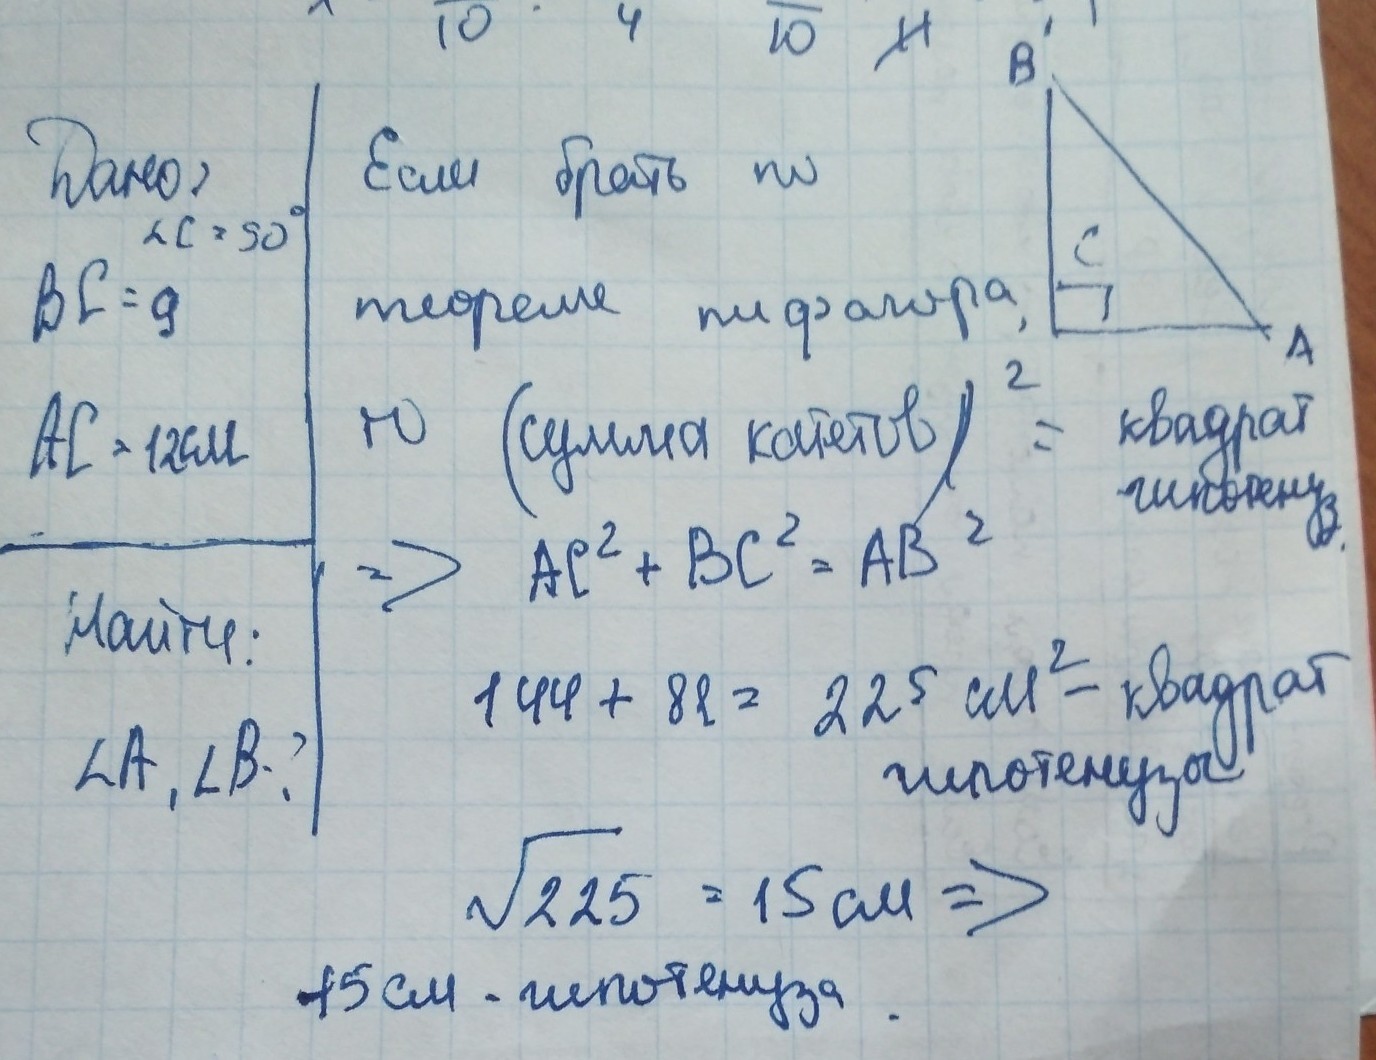 10 4 10
B
Дано:
∠C = 90°
BC = 9
AC = 12см
Найти:
∠A, ∠B-?
Если брать по
C
теореме пифагора,
A
то (сумма катетов)² = квадрат
гипотенуз.
=> AC² + BC² = AB²
144 + 81 = 225 см² - квадрат
гипотенузы
√225 = 15 см =>
15 см - гипотенуза.